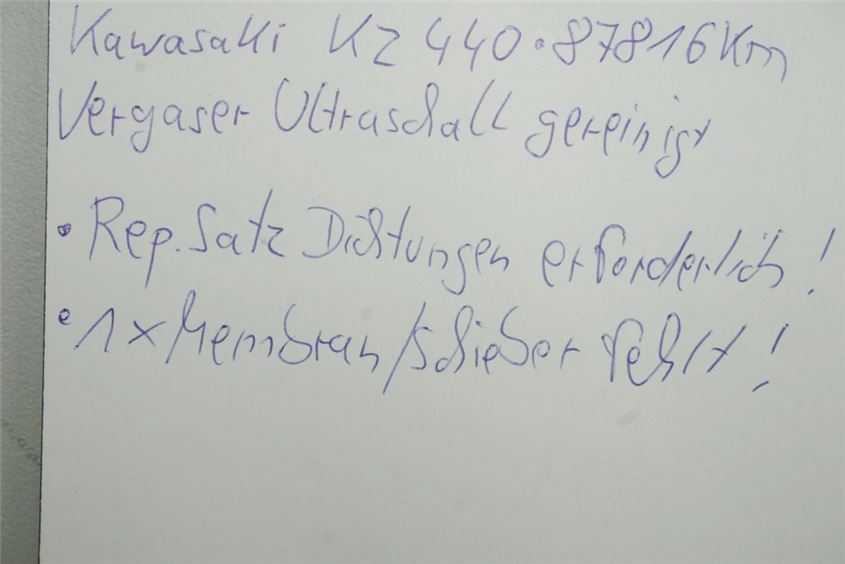 Kawasaki KZ 440 • 87816 Km
Vergaser Ultraschall gereinigt
• Rep. Satz Dichtungen erforderlich!
• 1x Membran/Schieber fehlt!